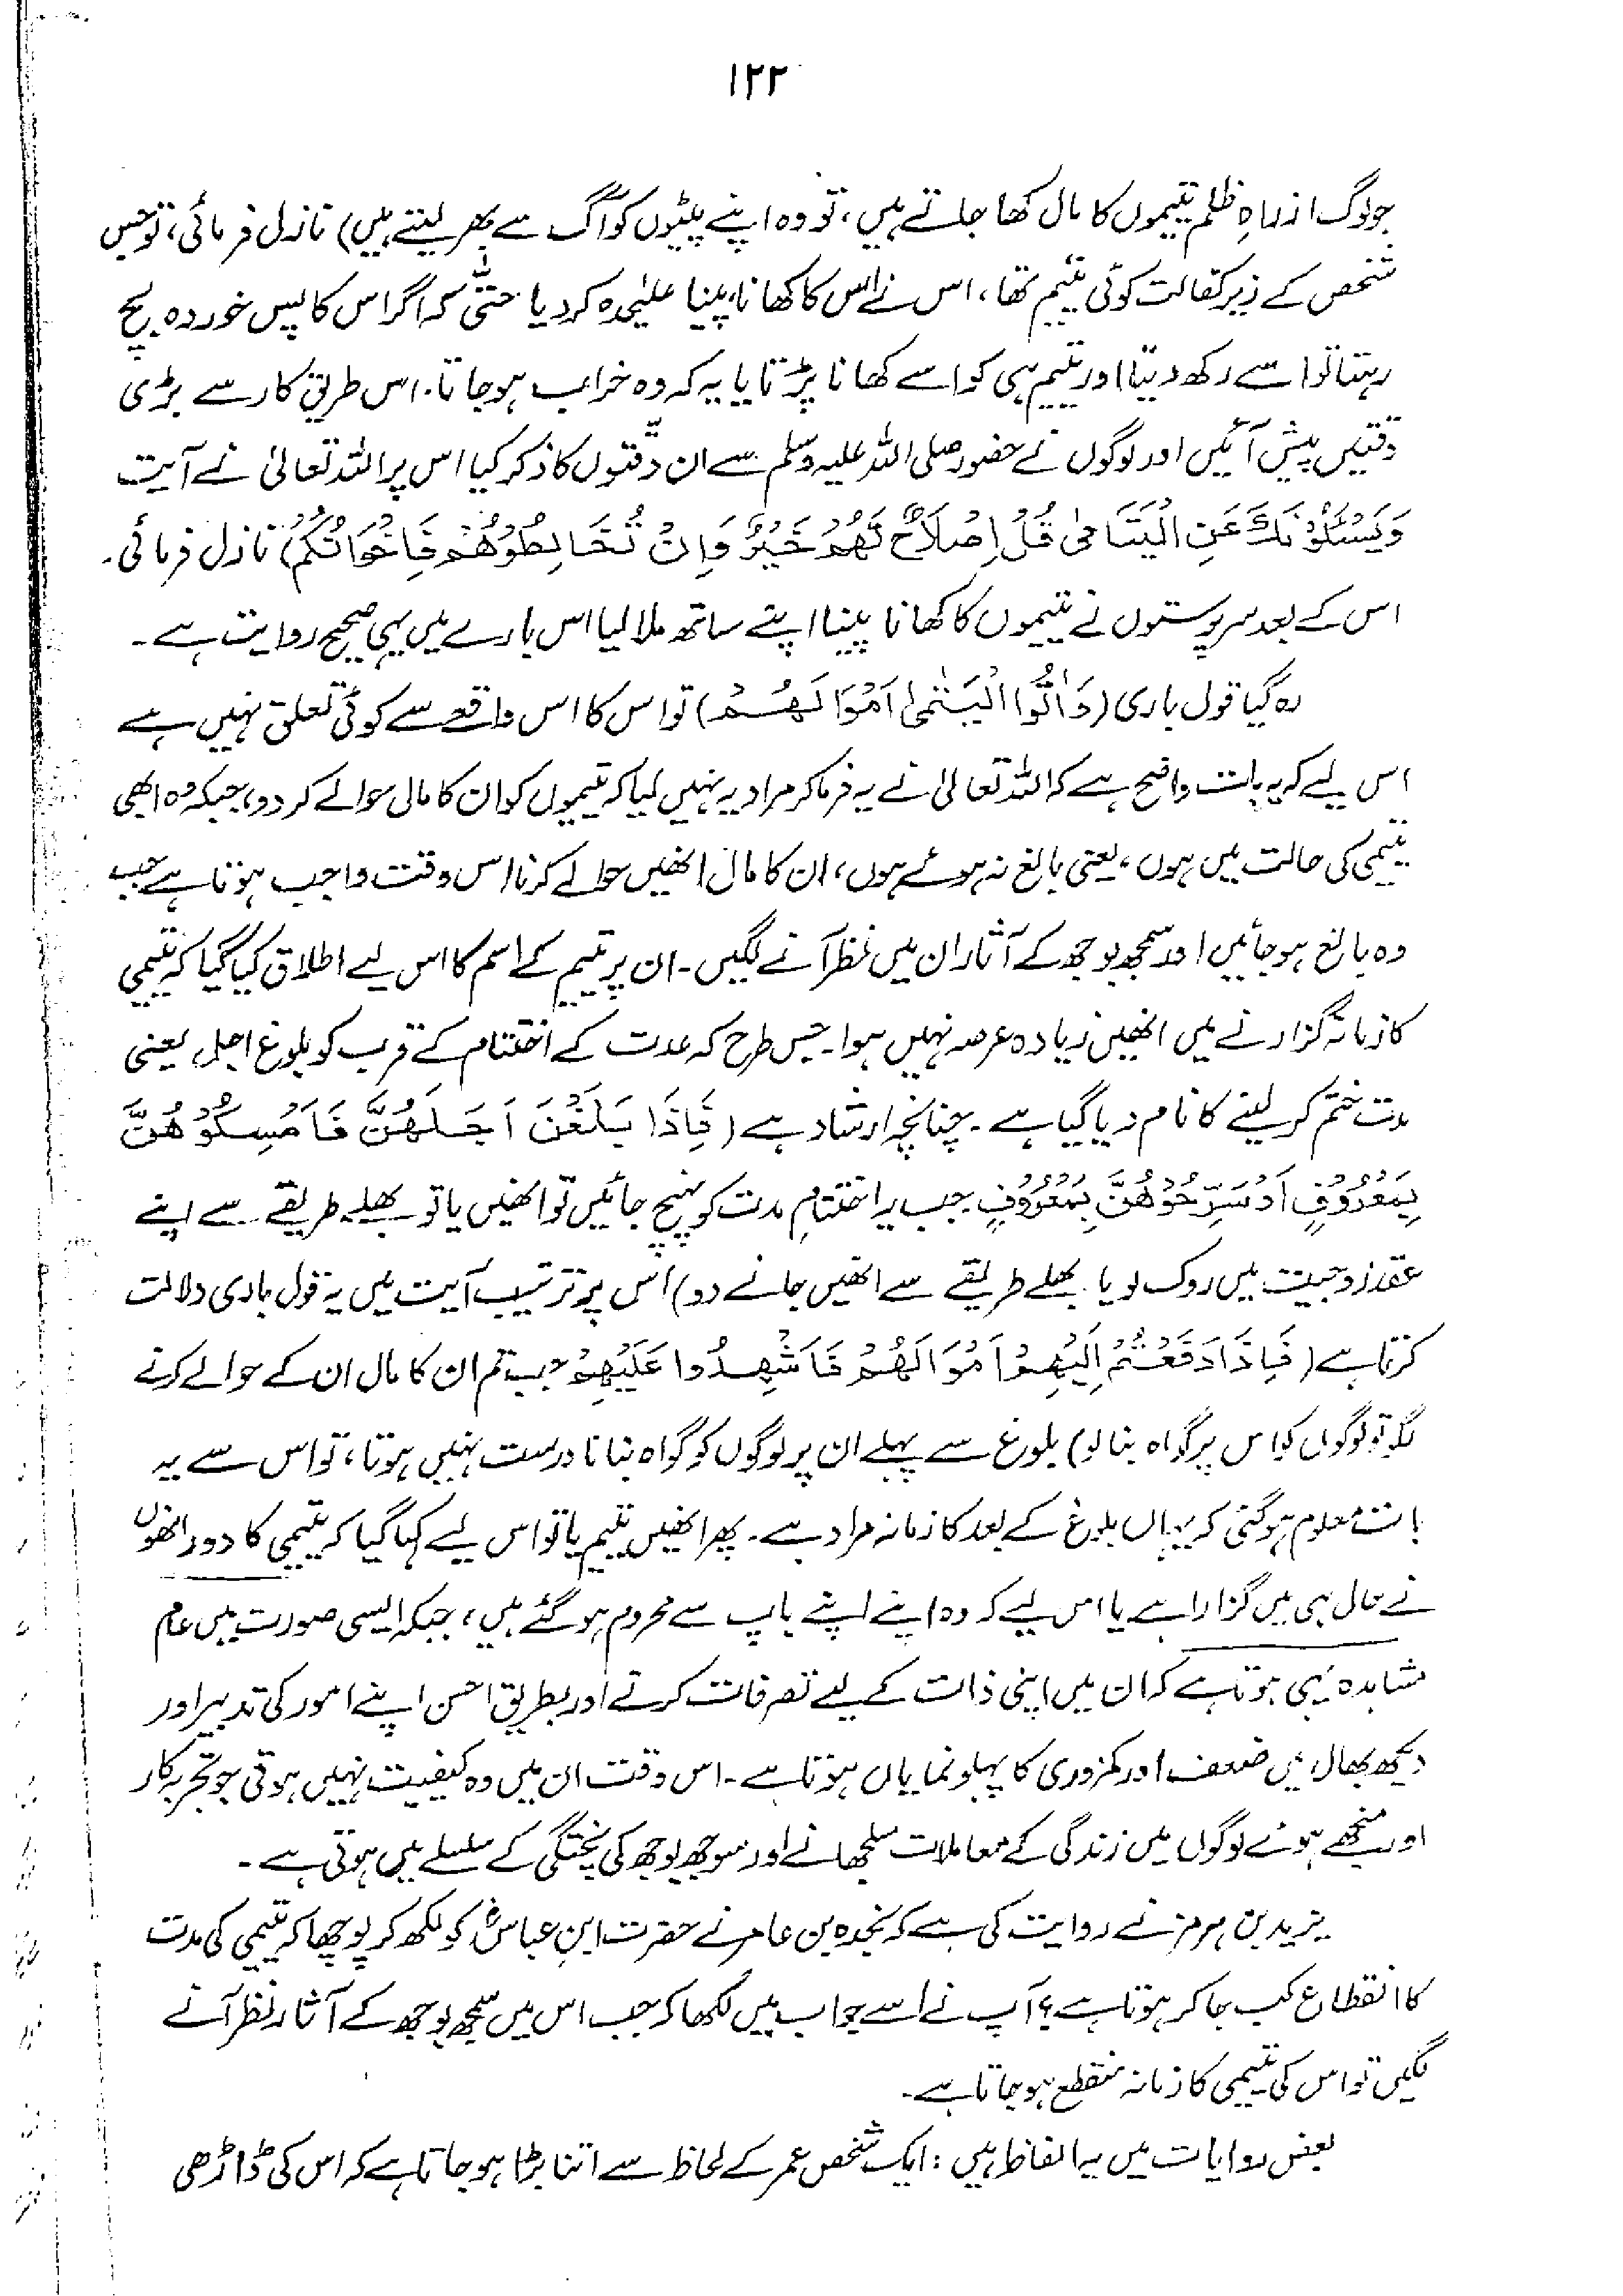 ۱۲۲
جو لوگ از راہِ ظلم یتیموں کا مال کھا جاتے ہیں، تو وہ اپنے پیٹوں کو آگ سے بھر لیتے ہیں) نازل فرمائی، تو جس
شخص کے زیر کفالت کوئی یتیم تھا، اس نے اس کا کھانا پینا علیحدہ کر دیا حتّٰی کہ اگر اس کا پس خوردہ بچ
رہتا تو اسے رکھ دیتا اور یتیم ہی کو اسے کھانا پڑتا یا یہ کہ وہ خراب ہو جاتا۔ اس طریق کار سے بڑی
دقتیں پیش آئیں اور لوگوں نے حضور صلی اللہ علیہ وسلم سے ان دقّتوں کا ذکر کیا اس پر اللہ تعالیٰ نے آیت
وَيَسْئَلُوْنَكَ عَنِ الْيَتَامٰى قُلْ اِصْلَاحٌ لَّهُمْ خَيْرٌ وَاِنْ تُخَالِطُوْهُمْ فَاِخْوَانُكُمْ) نازل فرمائی۔
اس کے بعد سرپرستوں نے یتیموں کا کھانا پینا اپنے ساتھ ملا لیا اس بارے میں یہی صحیح روایت ہے۔
رہ گیا قول باری (وَاٰتُوا الْيَتٰمٰى اَمْوَالَهُمْ) تو اس کا اس واقعے سے کوئی تعلق نہیں ہے
اس لیے کہ یہ بات واضح ہے کہ اللہ تعالیٰ نے یہ فرما کر مراد یہ نہیں لیا کہ یتیموں کو ان کا مال حوالے کر دو، جبکہ وہ ابھی
یتیمی کی حالت میں ہوں، یعنی بالغ نہ ہوئے ہوں، ان کا مال انھیں حوالے کرنا اس وقت واجب ہوتا ہے جب
وہ بالغ ہو جائیں اور سمجھ بوجھ کے آثار ان میں نظر آنے لگیں۔ ان پر یتیم کے اسم کا اس لیے اطلاق کیا گیا کہ یتیمی
کا زمانہ گزارنے میں انھیں زیادہ عرصہ نہیں ہوا۔ جس طرح کہ عدت کے اختتام کے قرب کو بلوغ اجل یعنی
مدت ختم کر لینے کا نام دیا گیا ہے۔ چنانچہ ارشاد ہے (فَاِذَا بَلَغْنَ اَجَلَهُنَّ فَاَمْسِكُوْهُنَّ
بِمَعْرُوْفٍ اَوْ سَرِّحُوْهُنَّ بِمَعْرُوْفٍ جب یہ اختتام مدت کو پہنچ جائیں تو انھیں یا تو بھلے طریقے سے اپنے
عقد زوجیت میں روک لو یا بھلے طریقے سے انھیں جانے دو) اس پر ترتیب آیت میں یہ قول باری دلالت
کرتا ہے (فَاِذَا دَفَعْتُمْ اِلَيْهِمْ اَمْوَالَهُمْ فَاَشْهِدُوا عَلَيْهِمْ جب تم ان کا مال ان کے حوالے کرنے
لگو تو لوگوں کو اس پر گواہ بنا لو) بلوغ سے پہلے ان پر لوگوں کو گواہ بنانا درست نہیں ہوتا، تو اس سے یہ
بات معلوم ہو گئی کہ یہاں بلوغ کے بعد کا زمانہ مراد ہے۔ پھر انھیں یتیم یا تو اس لیے کہا گیا کہ یتیمی کا دور انھوں
نے حال ہی میں گزارا ہے یا اس لیے کہ وہ اپنے اپنے باپ سے محروم ہو گئے ہیں، جبکہ ایسی صورت میں عام
مشاہدہ یہی ہوتا ہے کہ ان میں اپنی ذات کے لیے تصرفات کرنے اور بطریق احسن اپنے امور کی تدبیر اور
دیکھ بھال میں ضعف اور کمزوری کا پہلو نمایاں ہوتا ہے۔ اس وقت ان میں وہ کیفیت نہیں ہوتی جو تجربہ کار
اور منجھے ہوئے لوگوں میں زندگی کے معاملات سلجھانے اور سوجھ بوجھ کی پختگی کے سلسلے میں ہوتی ہے۔
یزید بن ہرمز نے روایت کی ہے کہ نجدہ بن عامر نے حضرت ابن عباسؓ کو لکھ کر پوچھا کہ یتیمی کی مدت
کا انقطاع کب جا کر ہوتا ہے؟ آپ نے اسے جواب میں لکھا کہ جب اس میں سمجھ بوجھ کے آثار نظر آنے
لگیں تو اس کی یتیمی کا زمانہ منقطع ہو جاتا ہے۔
بعض روایات میں یہ الفاظ ہیں: ایک شخص عمر کے لحاظ سے اتنا بڑا ہو جاتا ہے کہ اس کی ڈاڑھی